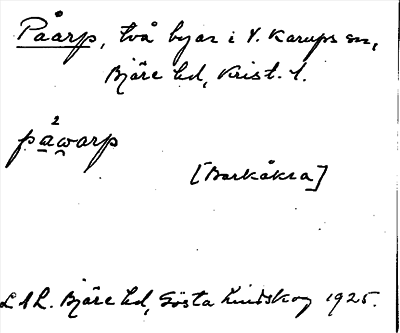 Påarp, två byar i V. Karups sn,
Bjäre hd, Krist. l.
2
påwarp
[Barkåkra]
LAL. Bjäre hd, Gösta Lindskog 1925.